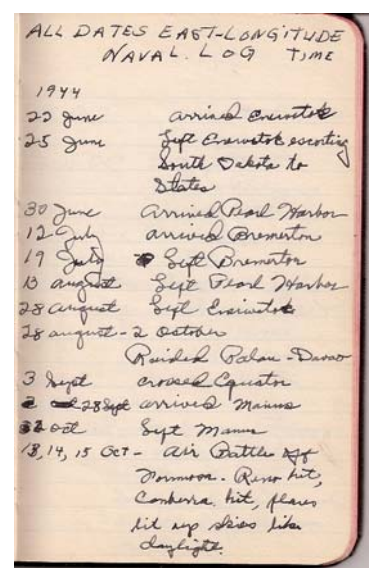 ALL DATES EAST-LONGITUDE
NAVAL LOG TIME
1944
22 June arrived Eniwetok
25 June Left Eniwetok escorting
South Dakota to
States
30 June Arrived Pearl Harbor
12 July arrived Bremerton
19 July Left Bremerton
13 august Left Pearl Harbor
28 august Left Eniwetok
28 august - 2 October
Raided Palau - Davao
3 Sept crossed Equator
28 Sept arrived Manus
Oct Left Manus
13, 14, 15 Oct - Air Battle Of
Formosa. Reno hit,
Canberra hit, planes
lit up skies like
daylight.